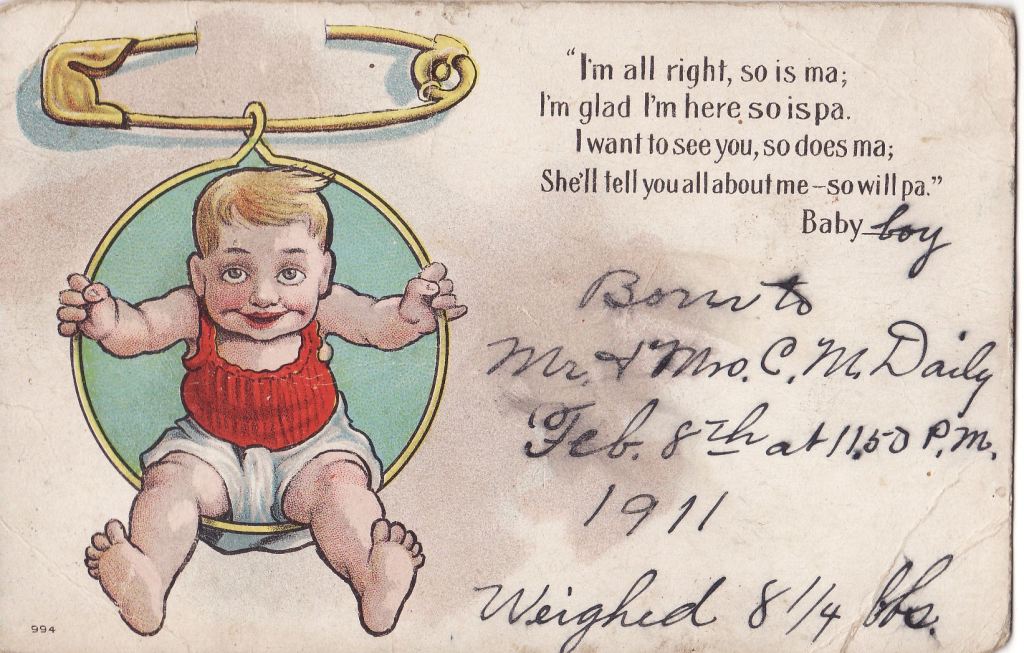 "I'm all right, so is ma;
I'm glad I'm here so is pa.
I want to see you, so does ma;
She'll tell you all about me—so will pa."
Baby boy
Born to
Mr. & Mrs. C. M. Daily
Feb. 8th at 11.50 P.M.
1911
Weighed 8 1/4 lbs.
994